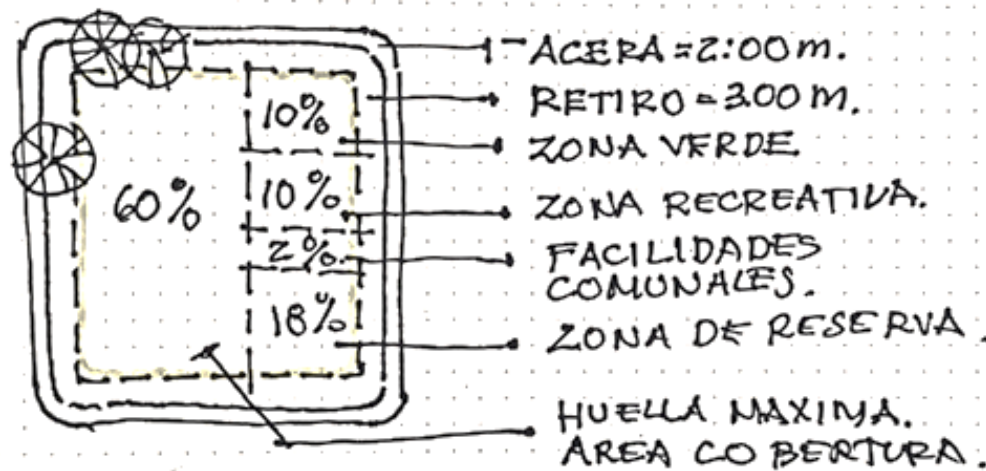 ACERA = 2:00 m.
RETIRO = 3.00 m.
10%
ZONA VERDE
60%
10%
ZONA RECREATIVA.
2%.
FACILIDADES
COMUNALES.
18%
ZONA DE RESERVA.
HUELLA MAXIMA.
AREA COBERTURA.